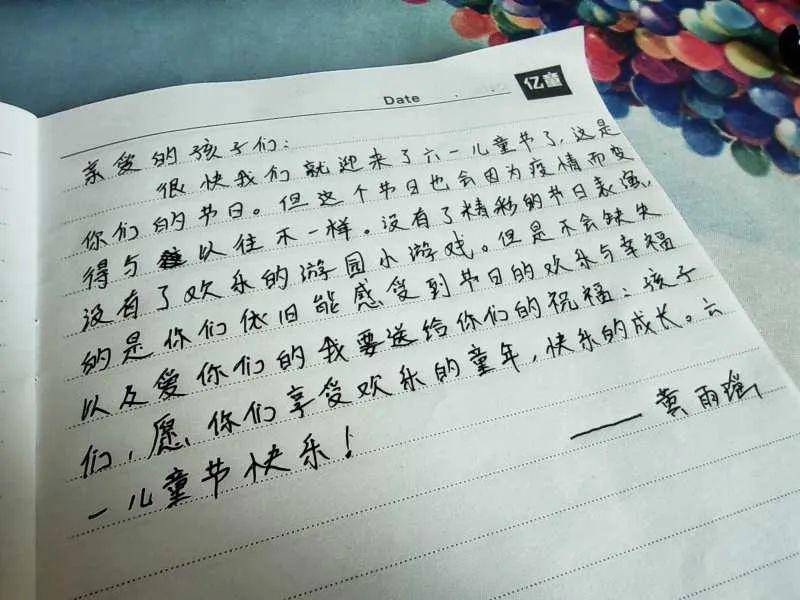 亿童
Date
亲爱的孩子们:
很快我们就迎来了六一儿童节了,这是
你们的节日。但这个节日也会因为疫情而变
得与以往不一样。没有了精彩的节日表演,
没有了欢乐的游园小游戏。但是不会缺失
的是你们依旧能感受到节日的欢乐与幸福
以及爱你们的我要送给你们的祝福:孩子
们,愿你们享受欢乐的童年,快乐的成长。六
一儿童节快乐!
——黄雨瑶